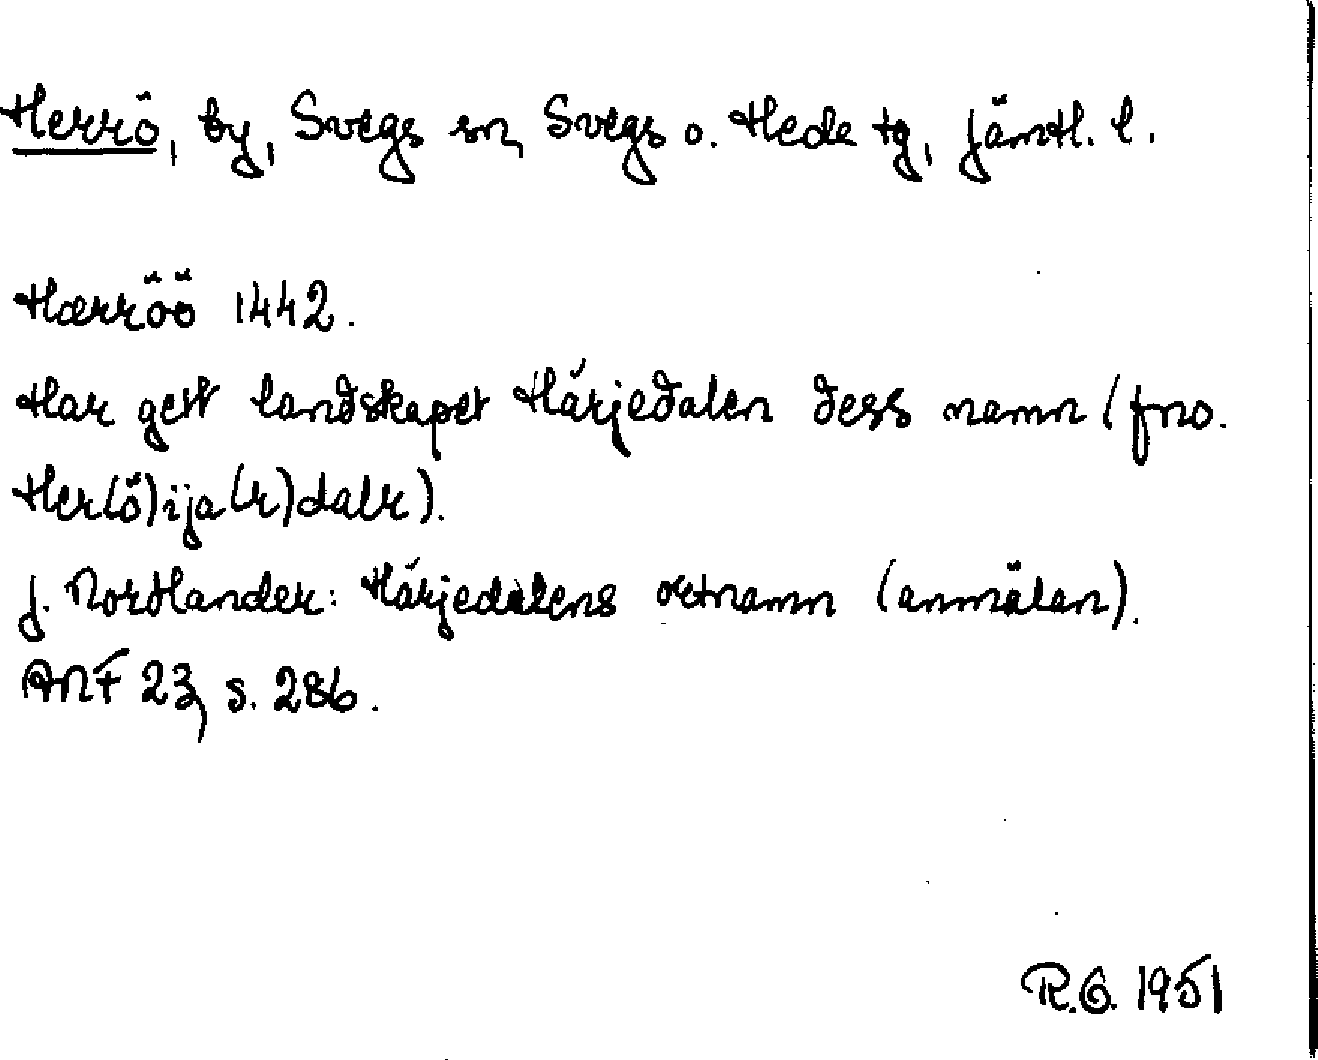 Herrö, by, Svegs sn, Svegs o. Hede tg, Jämtl. l.
Hærröö 1442.
Har gett landskapet Härjedalen dess namn (fno.
Her(ö)ija(r)dalr).
J. Nordlander: Härjedalens ortnamn (anmälan).
ANF 23, s. 286.
R.G. 1951